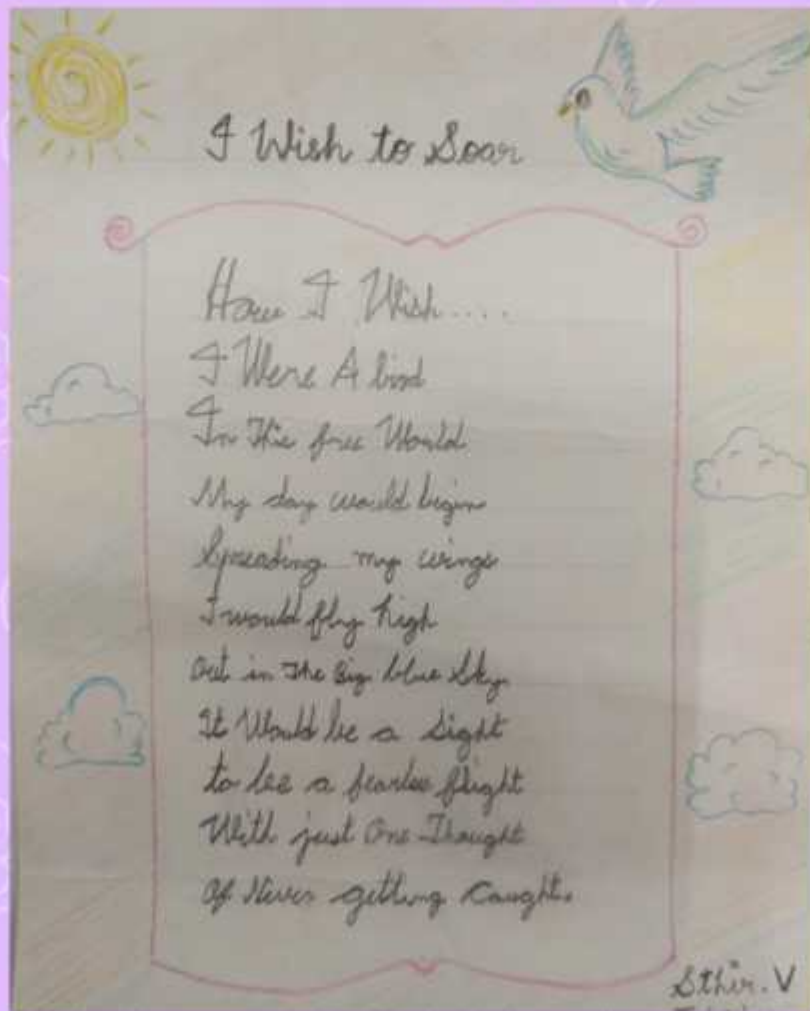 I Wish to Soar
How I Wish....
I Were A bird
In The free World
My day would begin
Spreading my wings
I would fly high
Out in The Big blue Sky
It Would be a Sight
to see a fearless flight
With just One Thought
Of Never getting Caught.
Sthir. V